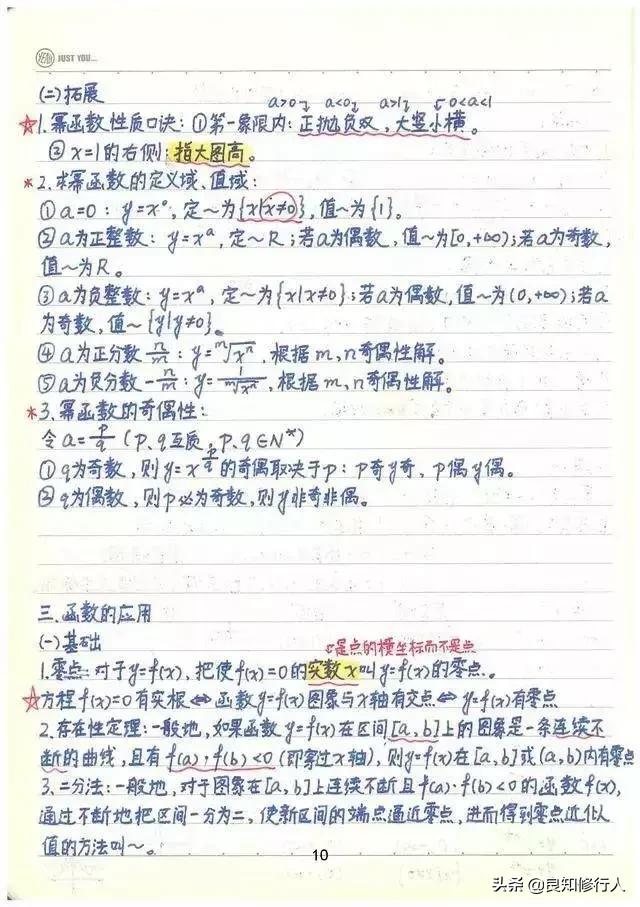 JUST YOU...
(二)拓展
a>0 a<0 a>1 0<a<1
☆1.幂函数性质口诀:①第一象限内:正抛负双,大竖小横。
②x=1的右侧:指大图高。
*2.求幂函数的定义域、值域:
①a=0:y=x⁰,定~为{x|x≠0},值~为{1}。
②a为正整数:y=xᵃ,定~R;若a为偶数,值~为[0,+∞);若a为奇数,
值~为R。
③a为负整数:y=xᵃ,定~为{x|x≠0};若a为偶数,值~为(0,+∞);若a
为奇数,值~{y|y≠0}。
④a为正分数n/m:y=ᵐ√xⁿ,根据m,n奇偶性解。
⑤a为负分数-n/m:y=1/ᵐ√xⁿ,根据m,n奇偶性解。
*3.幂函数的奇偶性:
令a=p/q(p、q互质,p、q∈N*)
①q为奇数,则y=x^(p/q)的奇偶取决于p:p奇y奇、p偶y偶。
②q为偶数,则p必为奇数,则y非奇非偶。
三.函数的应用
(一)基础
是点的横坐标而不是点
1.零点:对于y=f(x),把使f(x)=0的实数x叫y=f(x)的零点。
☆方程f(x)=0有实根⇔函数y=f(x)图象与x轴有交点⇔y=f(x)有零点
2.存在性定理:一般地,如果函数y=f(x)在区间[a,b]上的图象是一条连续不
断的曲线,且有f(a)·f(b)<0(即穿过x轴),则y=f(x)在[a,b]或(a,b)内有零点
3.二分法:一般地,对于图象在[a,b]上连续不断且f(a)·f(b)<0的函数f(x),
通过不断地把区间一分为二,使新区间的端点逼近零点,进而得到零点近似
值的方法叫~。
10
头条@良知修行人